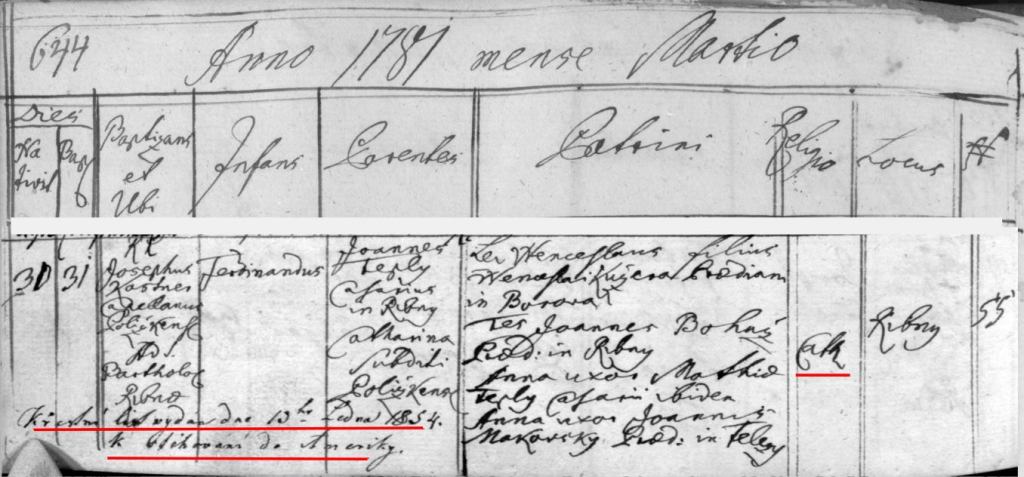 644 Anno 1781 mense Martio
Dies
Na
tivit
Bapt
Baptisans
et
Ubi
Infans
Parentes
Patrini
Religio
Locus
N
30 31
Josephus
Kastner
Capellanus
Ad S.
Bartholo
Ribnæ
Ferdinandus
Joannes
Teply
Casarius
in Ribny
Catharina
Subditi
Lev. Wenceslaus filius
Wenceslai Kučera
in Borova
Tes Joannes Bohuš
Præd: in Ribny
Anna uxor Mathiæ
Teply Casarii ibidem
Anna uxor Joannis
Makovsky Præd: in Teleny
Cath
Ribny
55
Křestní list vydán dne 13ho ledna 1854.
k stěhování do Ameriky.